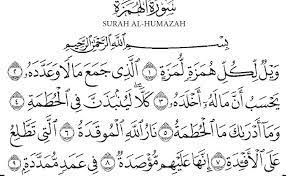 سُورَةُ الْهُمَزَةِ
SURAH AL-HUMAZAH
بِسْمِ اللَّهِ الرَّحْمَٰنِ الرَّحِيمِ
وَيْلٌ لِّكُلِّ هُمَزَةٍ لُّمَزَةٍ ١ الَّذِي جَمَعَ مَالًا وَعَدَّدَهُ ٢
يَحْسَبُ أَنَّ مَالَهُ أَخْلَدَهُ ٣ كَلَّا لَيُنْبَذَنَّ فِي الْحُطَمَةِ ٤
وَمَا أَدْرَاكَ مَا الْحُطَمَةُ ٥ نَارُ اللَّهِ الْمُوقَدَةُ ٦ الَّتِي تَطَّلِعُ
عَلَى الْأَفْئِدَةِ ٧ إِنَّهَا عَلَيْهِم مُّؤْصَدَةٌ ٨ فِي عَمَدٍ مُّمَدَّدَةٍ ٩